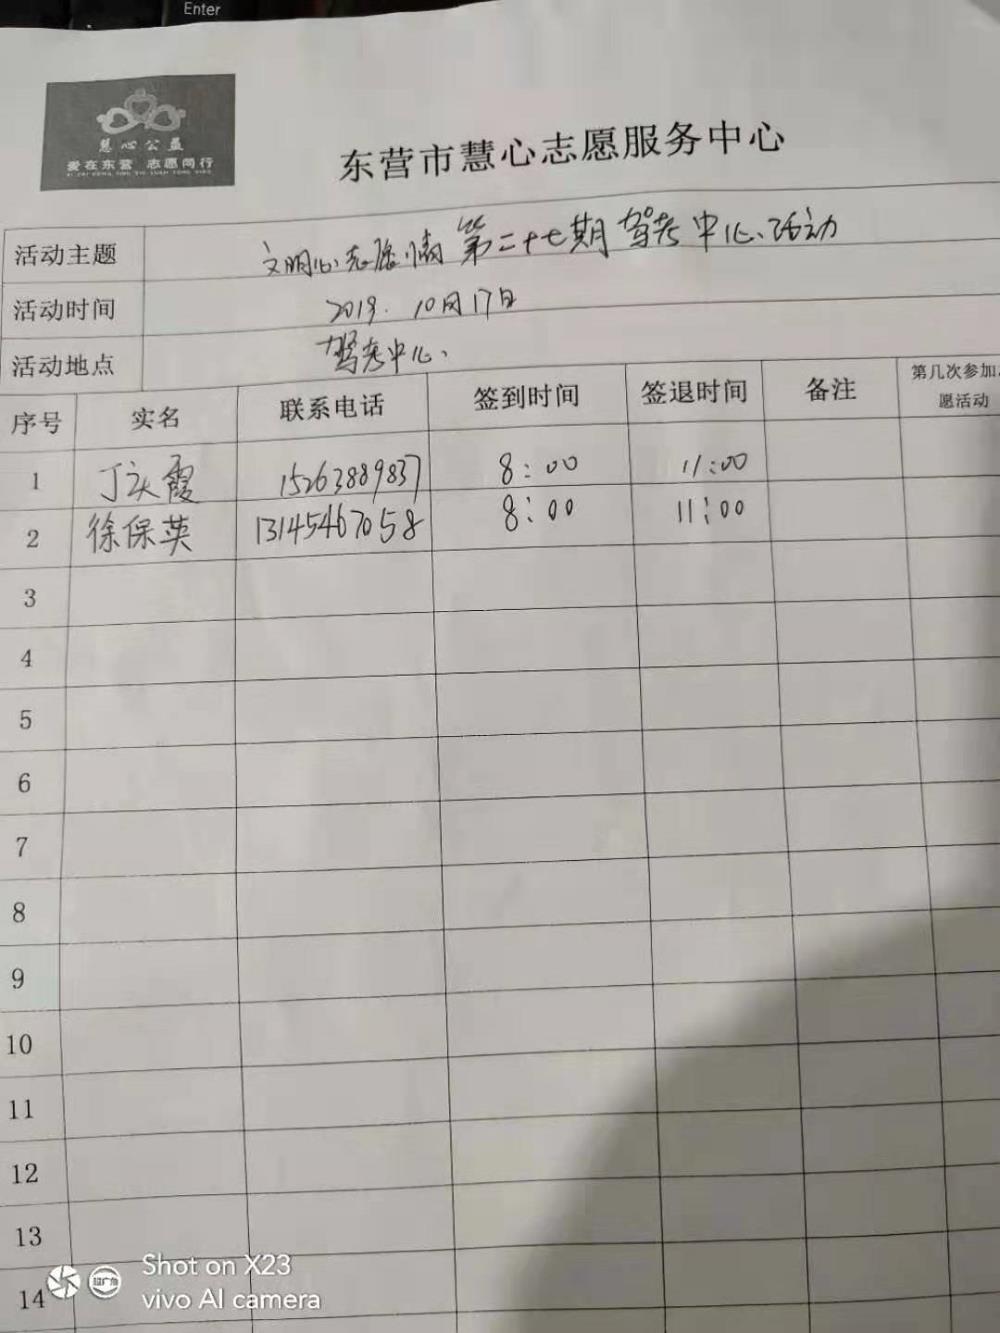 Enter
慧心公益
爱在东营 志愿同行
东营市慧心志愿服务中心
活动主题 文明心志愿情第二十七期驾考中心活动
活动时间 2019.10月17日
活动地点 驾考中心、
序号 实名 联系电话 签到时间 签退时间 备注 第几次参加志
愿活动
1 丁庆霞 15263889837 8:00 11:00
2 徐保英 13145467058 8:00 11:00
3
4
5
6
7
8
9
10
11
12
13
14
Shot on X23
vivo AI camera